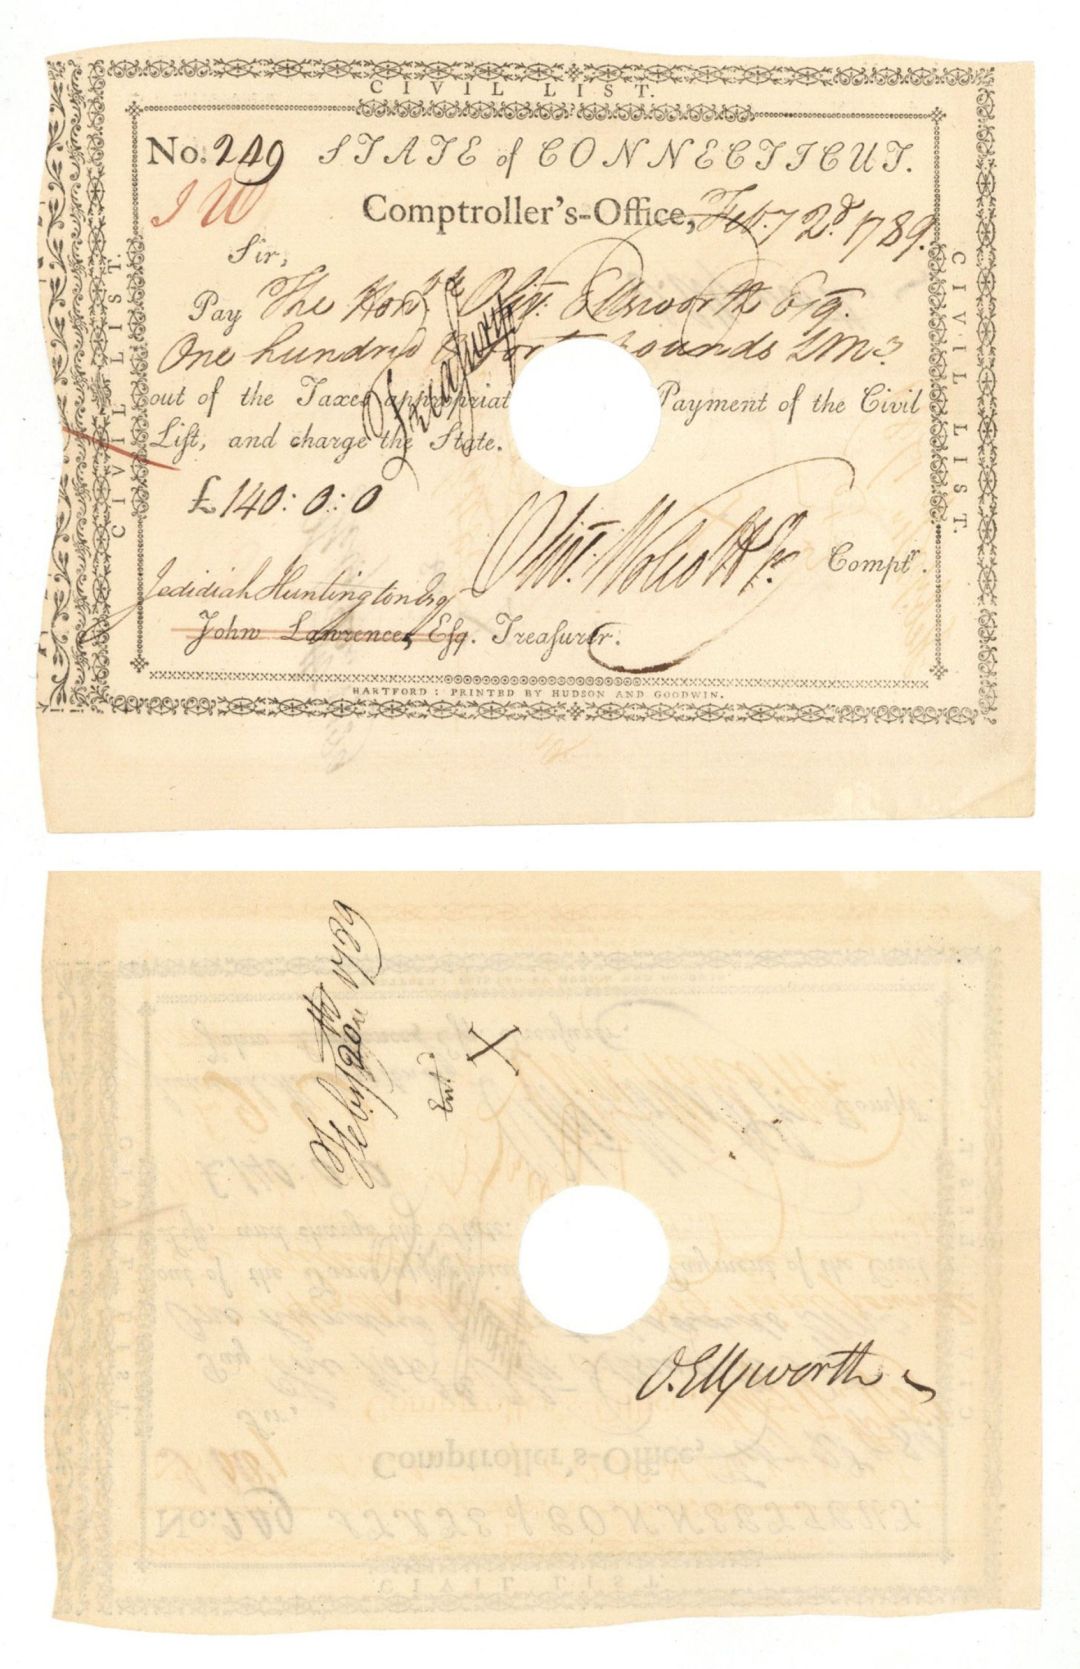 CIVIL LIST.
No. 249 STATE of CONNECTICUT.
I W
Comptroller's-Office, Feby 2d. 1789.
Sir,
Pay The Honble Olivr. Ellsworth Esq.
One hundred & forty pounds LM
out of the Taxes appropriat Payment of the Civil
List, and charge the State.
£ 140: 0: 0
Olivr. Wolcott Jr. Comptr.
Jedidiah Huntington Esq
John Lawrence, Esq. Treasurer.
HARTFORD: PRINTED BY HUDSON AND GOODWIN.
CIVIL LIST.
CIVIL LIST.
Treasury
Feby 20th 1789
Entd.
X
O. Ellsworth